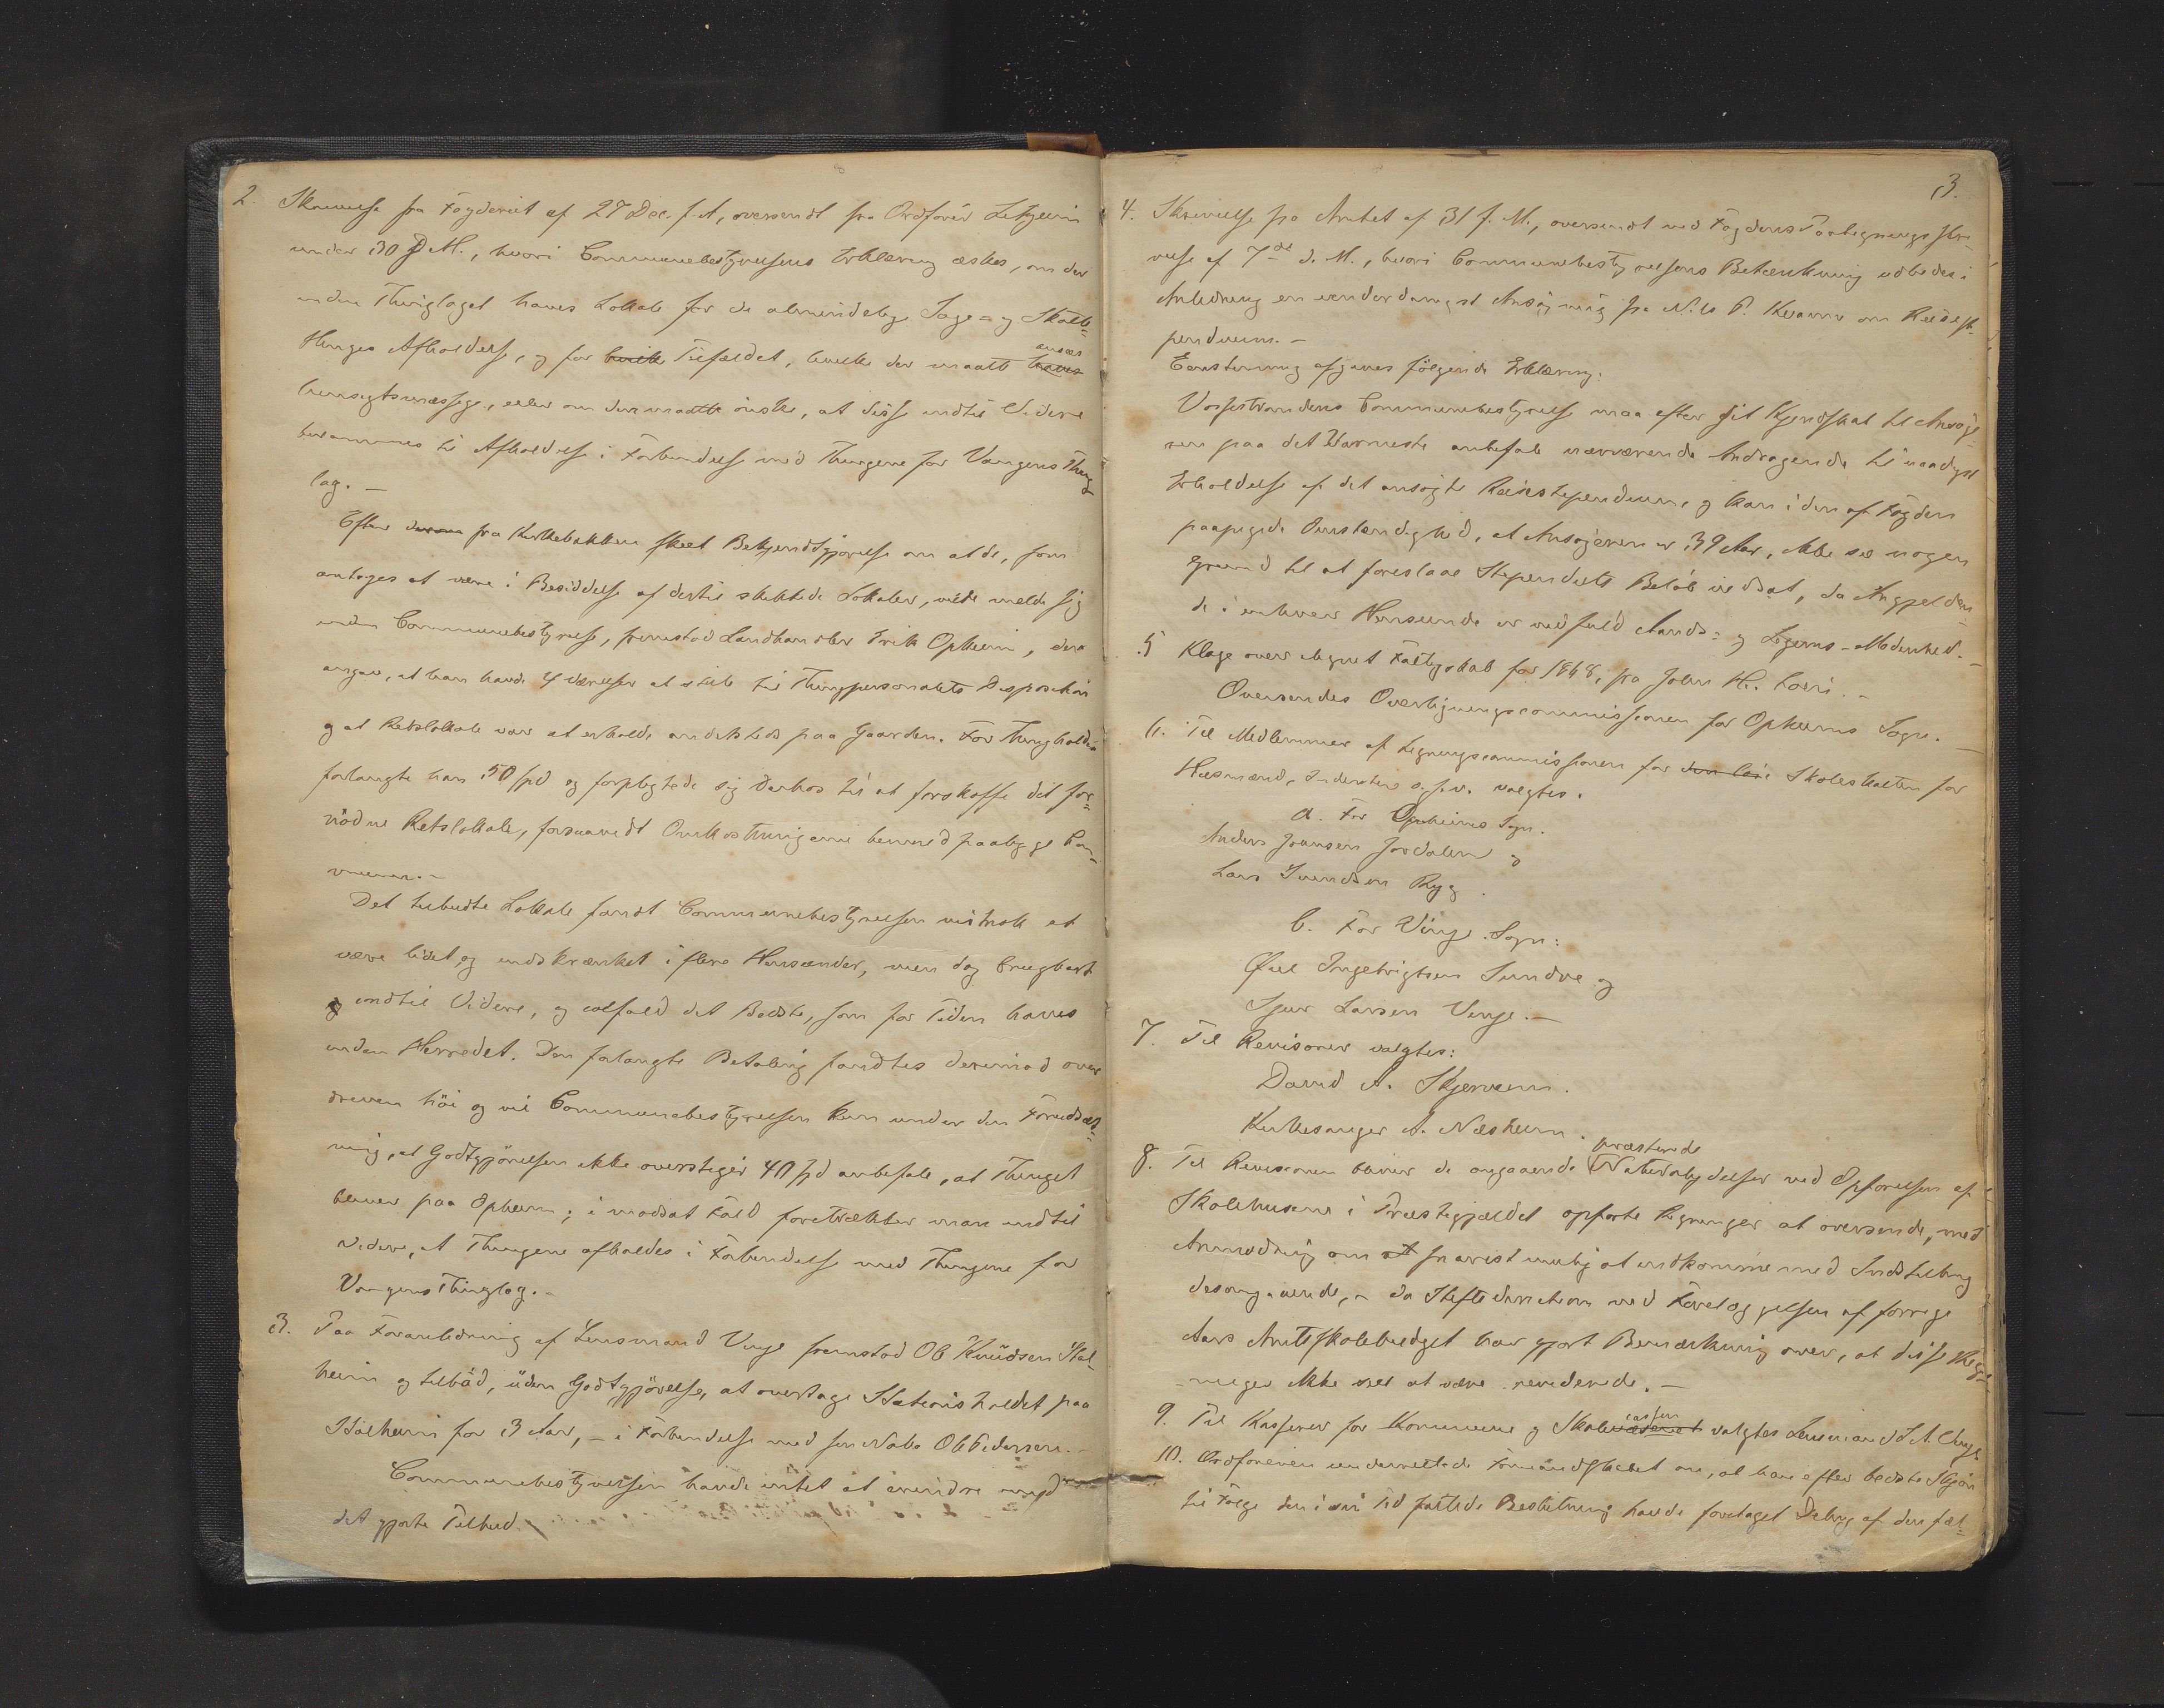 2. Skrivelse fra Fogderiet af 27 Dec. f. A., oversendt fra Ordfører
under 30 d. M., hvori Communebestyrelsens Erklæring æskes, om der
inden Thinglaget haves Lokale for de almindelige Sage- og Skatte-
thinges Afholdelse, og for Tilfældet, hvilke der maatte ansees
hensigtsmæssige, eller om der maatte ønskes, at disse indtil Videre
berammes til Afholdelse i Forbindelse med Thingene for Vangens Thing
lag. —
Efter fra Kirkebakken skeet Bekjendtgjørelse om at de, som
antoges at være i Besiddelse af dertil skikkede Lokaler, vilde melde sig
inden Communebestyrelse, fremstod Landhandler Erik Opheim, der
angav, at han havde 4 Værelser at stille til Thingpersonalets Disposition
og at Retslokale var at erholde andetsteds paa Gaarden. For Thingholdet
forlangte han 50 spd og forpligtede sig derhos til at forskaffe det for-
nødne Retslokale, forsaavidt Omkostningerne herved paaligge Com-
munen. —
Det tilbudte Lokale fandt Communebestyrelsen vistnok at
være lidet og indskrænket i flere Henseender, men dog brugbart
indtil Videre, og ialfald det Bedste, som for Tiden haves
inden Herredet. Den forlangte Betaling fandtes derimod over
dreven høi og vil Communebestyrelsen kun under den Forudsæt-
ning, at Godtgjørelsen ikke overstiger 40 spd anbefale, at Thinget
bliver paa Opheim; i modsat Fald foretrækker man indtil
Videre, at Thingene afholdes i Forbindelse med Thingene for
Vangens Thinglag. —
3. Paa Foranledning af Lensmand Vinje fremstod Ole Knudsen Stal-
heim og tilbød, uden Godtgjørelse, at overtage Stationsholdet paa
Stalheim for 3 Aar, — i Forbindelse med sin Nabo Ole Pedersen. —
Communebestyrelsen havde intet at erindre imod
det gjorte Tilbud.
3.
4. Skrivelse fra Amtet af 31 f. M., oversendt ved Fogdens Paategnings Skri-
velse af 7de d. M., hvori Communebestyrelsens Betænkning udbedes i
Anledning en underdanigst Ansøgning fra Nils P. Kvamme om Reisesti-
pendium. —
Eenstemmig afgaves følgende Erklæring:
Vossestrandens Communebestyrelse maa efter sit Kjendskab til Ansøge-
ren paa det Varmeste anbefale nærværende Andragende til naadigst
Erholdelse af det ansøgte Reisestipendium, og kan i den af Fogden
paapegede Omstændighed, at Ansøgeren er 39 Aar, ikke see nogen
Grund til at foreslaae Stipendiets Beløb nedsat, da Angjelden-
de i enhver Henseende er ved fuld Aands- og Legems-Modenhed. —
5 Klage over lignet Fattigskab for 1868, fra John H.
Oversendes Overligningscommissionen for Opheims Sogn. —
6. Til Medlemmer af Ligningscommissionen for Skoleskatten for
Husmænd, Inderster o. s. v. valgtes.
a. For Opheims Sogn.
Anders Joansen Jordalen og
Lars Svendsen Ryg.
b. For Vinje Sogn:
Ingebrigtsen Sundve og
Sjur Larsen Vinje. —
7. Til Revisorer valgtes:
David A. Skjervem.
Kirkesanger A. Næsheim.
8. Til Revisionen bliver de angaaende præsterede Naturalydelser ved Opførelsen af
Skolehusene i Præstegjældet opførte Regninger at oversende, med
Anmodning om snarest mulig at indkomme med Indstilling
desangaaende, — da Stiftsdirectionen ved Forelæggelsen af forrige
Aars Amtsskolebudget har gjort Bemærkning over, at disse Reg-
ninger ikke sees at være reviderede. —
9. Til Kasserer for Kommune og Skolecassen valgtes Lensmand A. Vinje
10. Ordføreren underrettede Formandskabet om, at han efter bedste Skjøn
til Følge den i sin Tid fattede Beslutning havde foretaget Deling af den fæl-